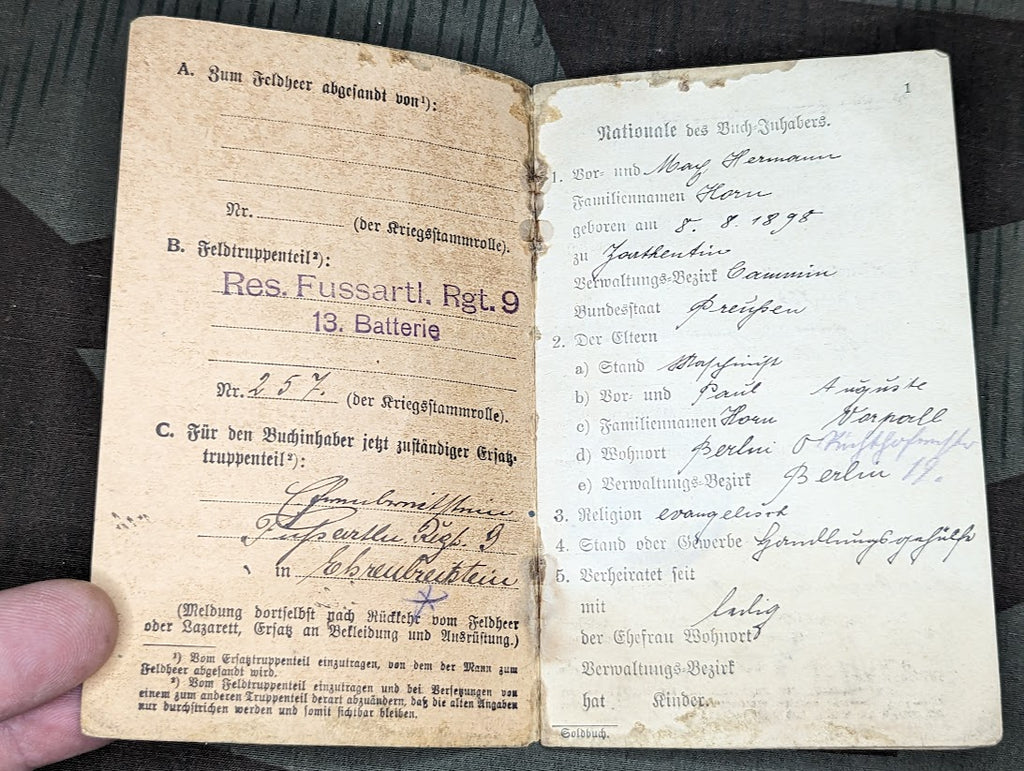 A. Zum Feldheer abgesandt von¹):
Nr. (der Kriegsstammrolle).
B. Feldtruppenteil²):
Res. Fussartl. Rgt. 9
13. Batterie
Nr. 257. (der Kriegsstammrolle).
C. Für den Buchinhaber jetzt zuständiger Ersatz-
truppenteil²):
Ehrenbreitstein
Fußartll. Regt. 9
in Ehrenbreitstein
(Meldung dortselbst nach Rückkehr vom Feldheer
oder Lazarett, Ersatz an Bekleidung und Ausrüstung.)
¹) Vom Ersatztruppenteil einzutragen, von dem der Mann zum
Feldheer abgesandt wird.
²) Vom Feldtruppenteil einzutragen und bei Versetzungen von
einem zum anderen Truppenteil derart abzuändern, daß die alten Angaben
nur durchstrichen werden und somit sichtbar bleiben.
1
Nationale des Buch-Inhabers.
1. Vor- und Max Hermann
Familiennamen Horn
geboren am 8. 8. 1898
zu
Verwaltungs-Bezirk Cammin
Bundesstaat Preußen
2. Der Eltern
a) Stand Maschinist
b) Vor- und Paul Auguste
c) Familiennamen Horn
d) Wohnort Berlin O
e) Verwaltungs-Bezirk Berlin 19.
3. Religion evangelisch
4. Stand oder Gewerbe Handlungsgehülfe
5. Verheiratet seit
mit ledig
der Ehefrau Wohnort
Verwaltungs-Bezirk
hat Kinder.
Soldbuch.